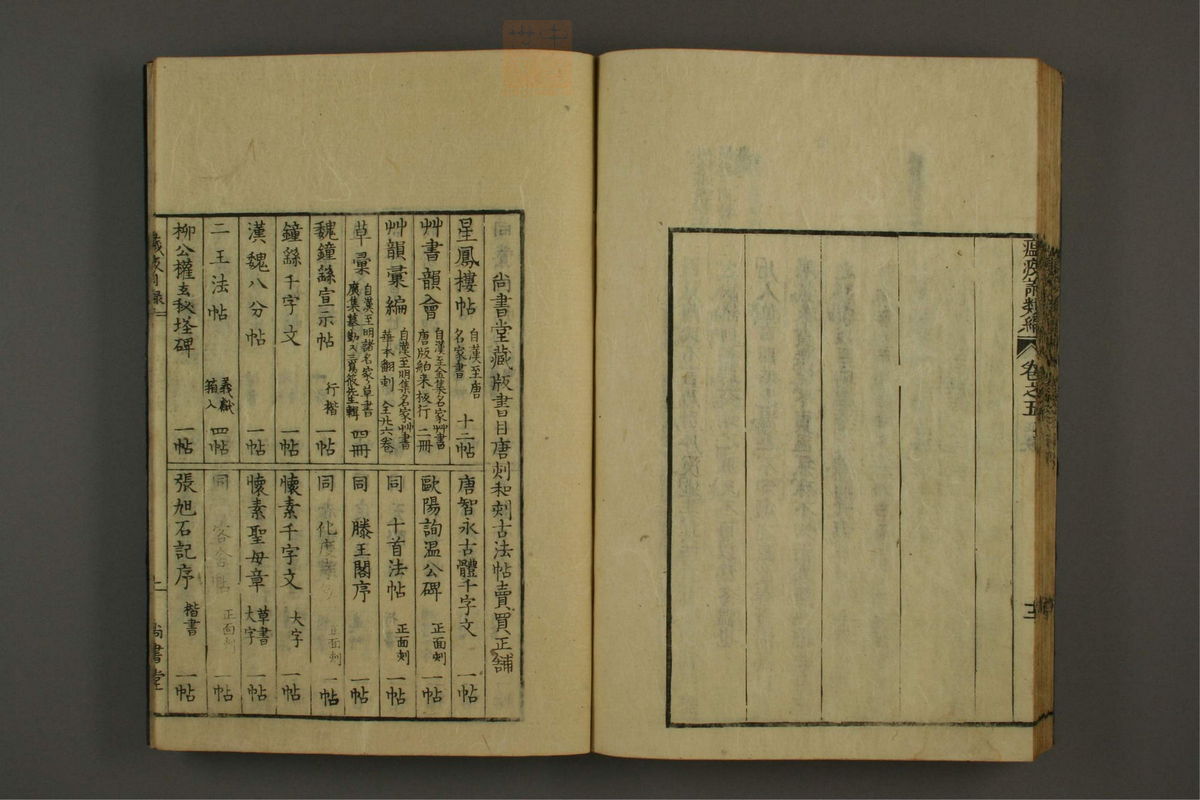 瘟疫論類編
卷之五
尚書堂藏版書目唐刻和刻古法帖賣買正舖
星鳳樓帖 自漢至唐名家書 十二帖
艸書韻會 自漢至金集名家艸書唐版舶来板行 二冊
艸韻彙編 自漢至明集名家艸書華本翻刻 全廿六卷
草彙 自漢至明諸名家草書廣集摹勒 四冊
魏鐘繇宣示帖 行楷 一帖
鐘繇千字文 一帖
漢魏八分帖 一帖
二王法帖 羲獻箱入 四帖
柳公權玄秘塔碑 一帖
唐智永古體千字文 一帖
歐陽詢温公碑 正面刻 一帖
同 十首法帖 正面刻 一帖
同 滕王閣序 一帖
同 化度 正面刻 一帖
懐素千字文 大字 一帖
懐素聖母章 草書大字 一帖
同 正面刻 一帖
張旭石記序 楷書 一帖
尚書堂